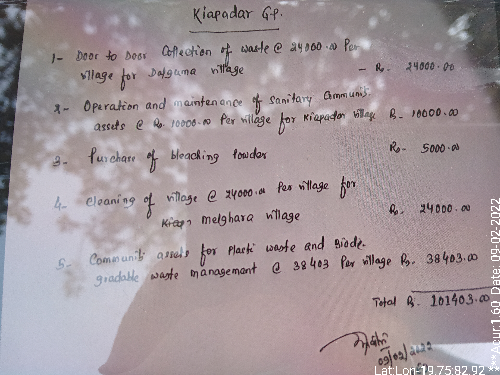 Kiapadar G.P.
1- Door to Door Collection of waste @ 24000.00 Per
village for Dalguma village - Rs. 24000.00
2- Operation and maintenance of sanitary Communit
assets @ Rs. 10000.00 Per village for Kiapadar village Rs- 10000.00
3- Purchase of bleaching Powder Rs- 5000.00
4- Cleaning of village @ 24000.00 Per village for
melghara village Rs- 24000.00
5- Communit assets for Plastic waste and Biode-
gradable waste management @ 38403 Per village Rs- 38403.00
Total Rs- 101403.00
09/02/2022
Lat Lon-19.75 82.92 *** Acur:1.60 Date. 09-02-2022